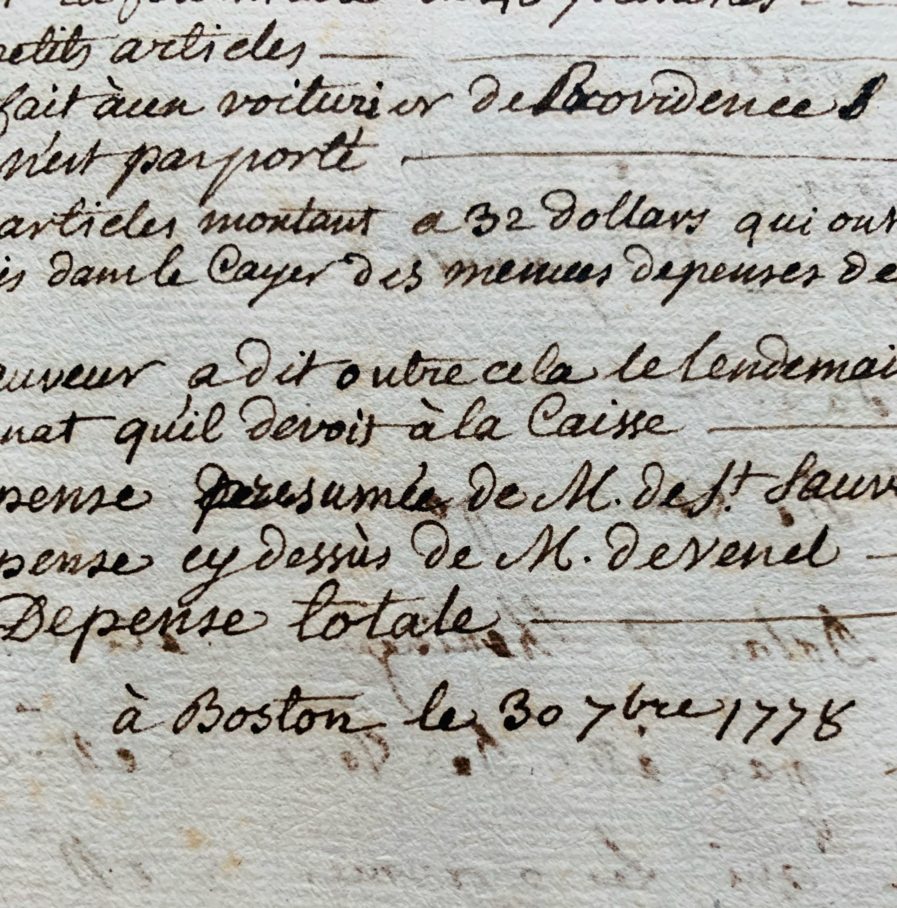 petits articles
fait à un voiturier de Providence
n'est pas porté
articles montant a 32 dollars qui ont
is dans le Cayer des menues depenses de
auveur a dit outre cela le lendemai
nat qu'il devoit à la Caisse
pense presumée de M. de St. Sauve
pense cy dessùs de M. de venel
Depense totale
à Boston le 30 7bre 1778